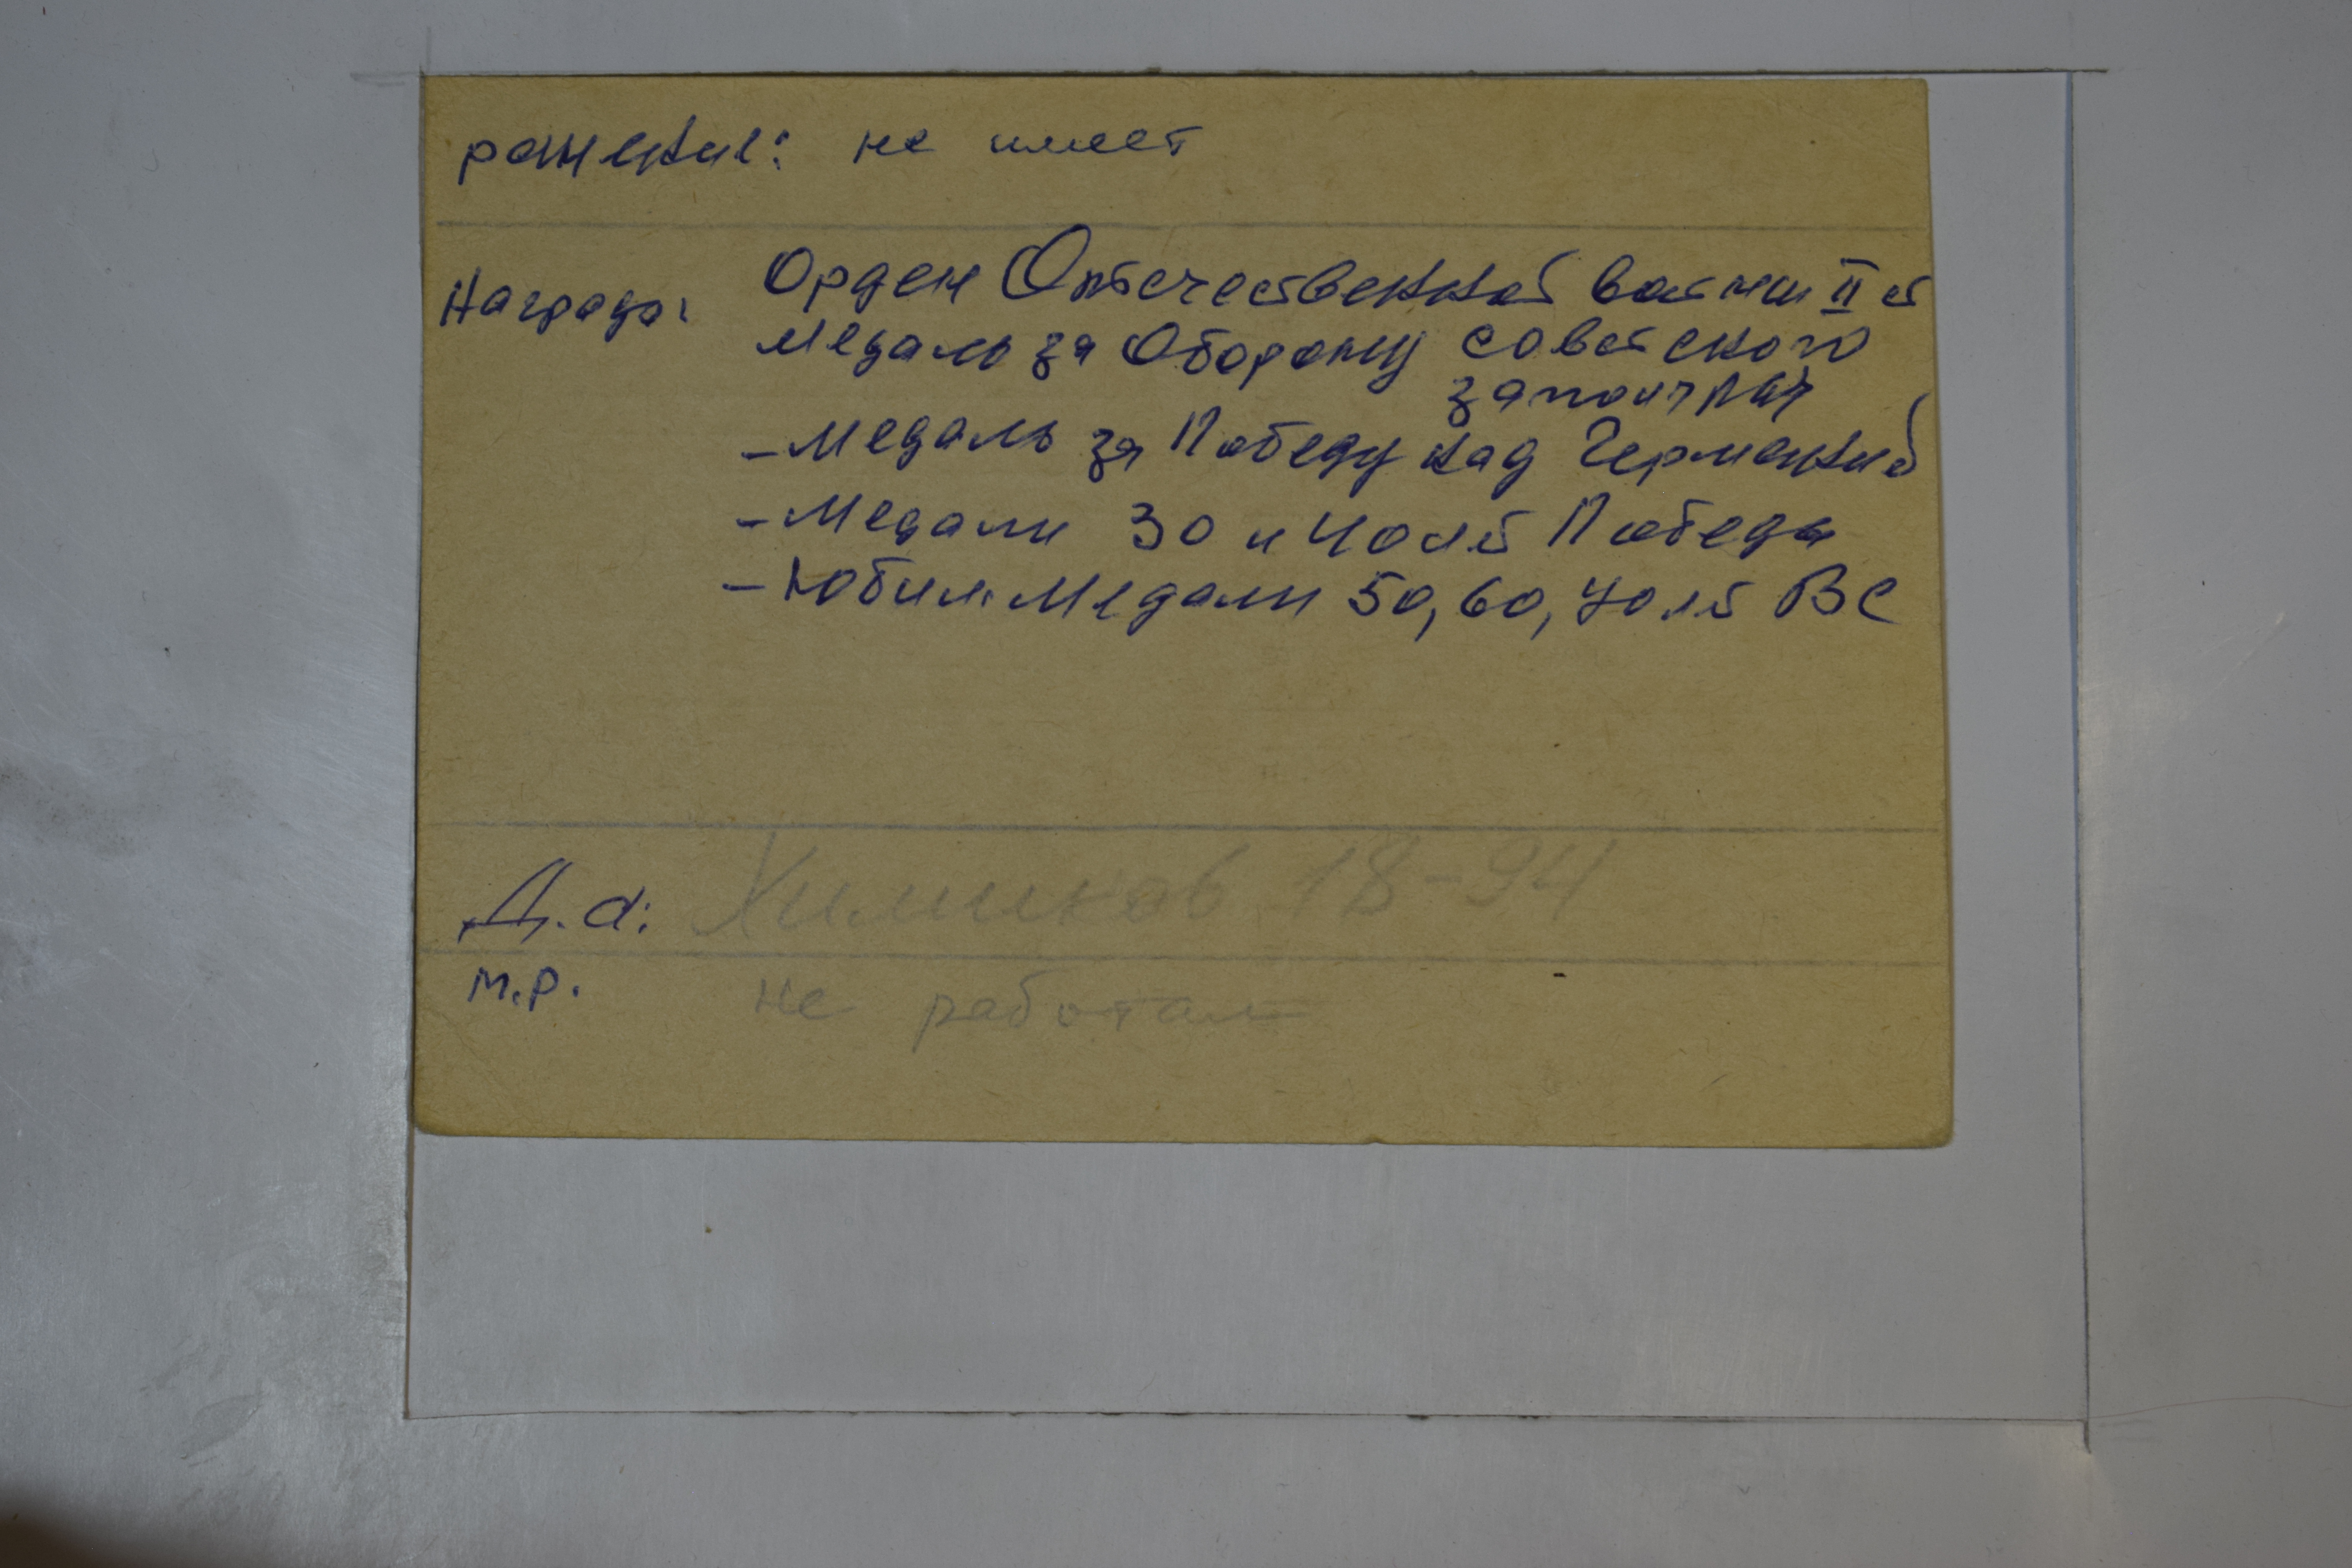 ранение: не имеет
Награды: Орден Отечественной войны II ст
Медаль за Оборону Советского
заполярья
- Медаль за Победу над Германией
- Медали 30 и 40 лет Победы
- Юбил. Медали 50, 60, 70 лет ВС
Д.а: Химиков 18-94
М.Р. не работал